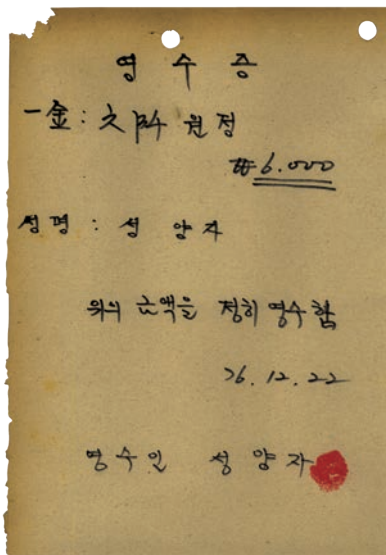 영수증
一金 : 六阡 원정
₩6.000
성명 : 성양자
위의 금액을 정히 영수함
76.12.22
영수인 성양자